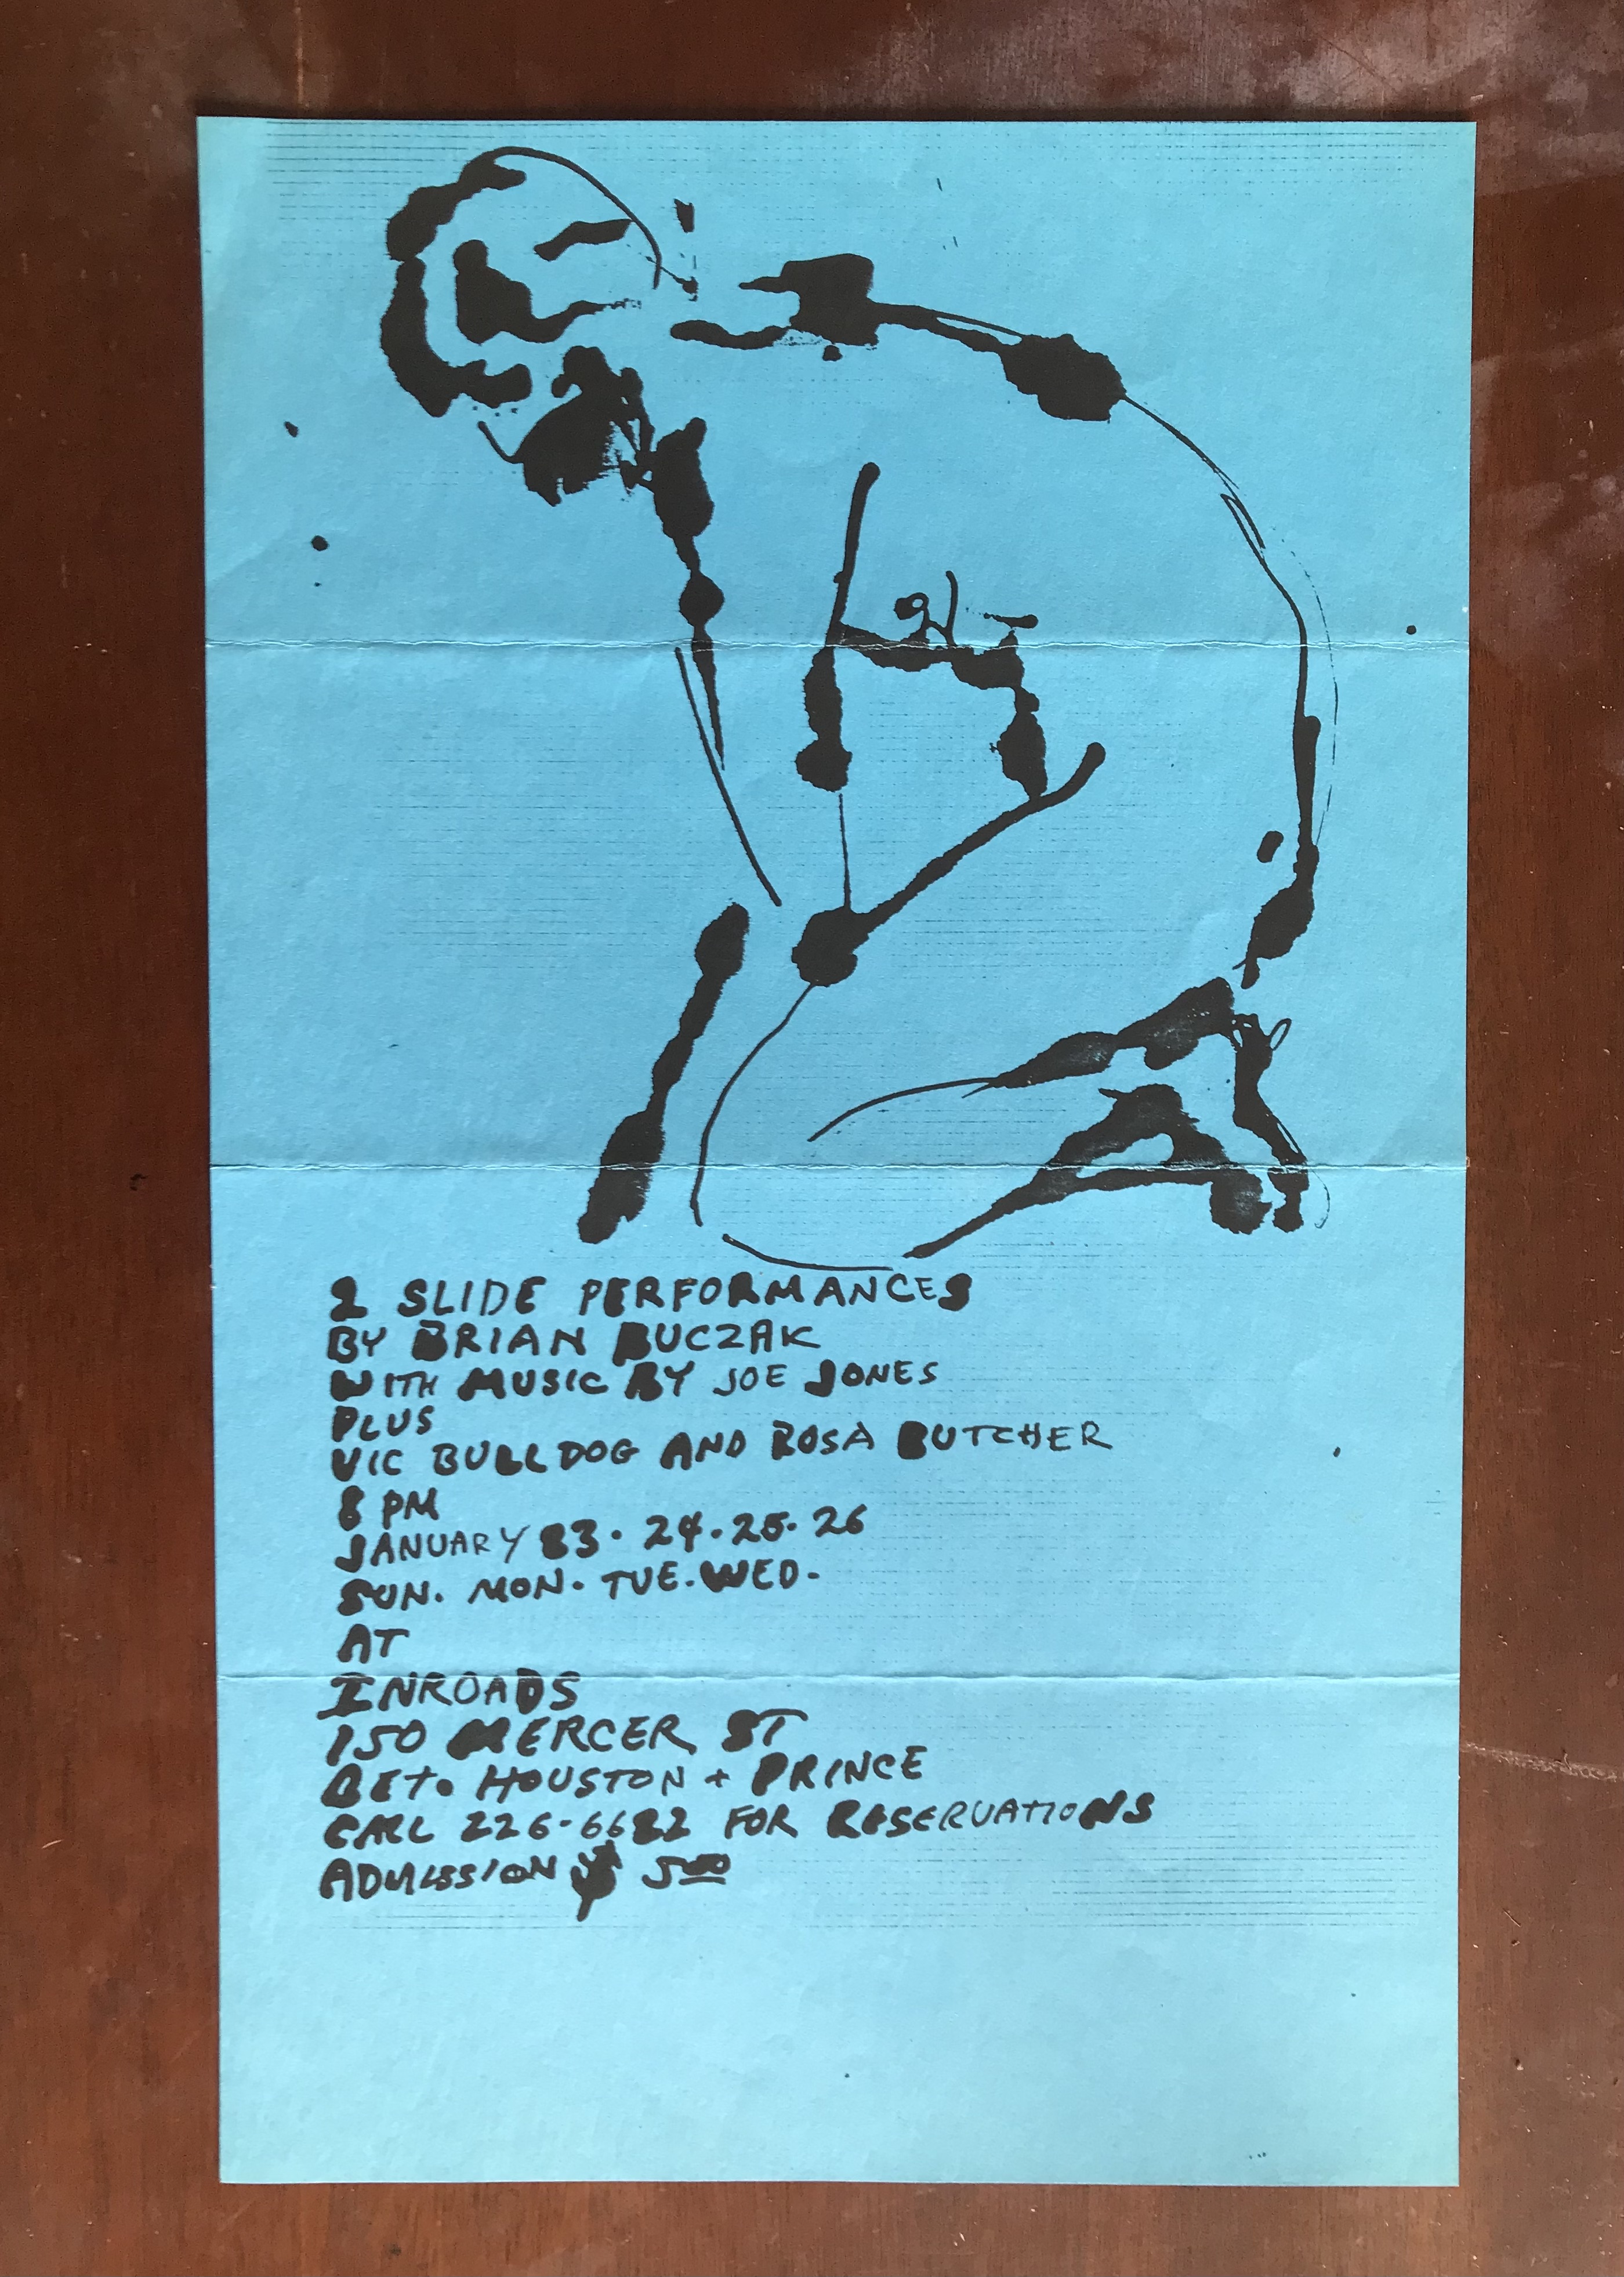 2 SLIDE PERFORMANCES
BY BRIAN BUCZAK
WITH MUSIC BY JOE JONES
PLUS
VIC BULLDOG AND ROSA BUTCHER
8 PM
JANUARY 23. 24. 25. 26
SUN. MON. TUE. WED.
AT
INROADS
150 MERCER ST
BET. HOUSTON + PRINCE
CALL 226-6622 FOR RESERVATIONS
ADMISSION $ 5.00